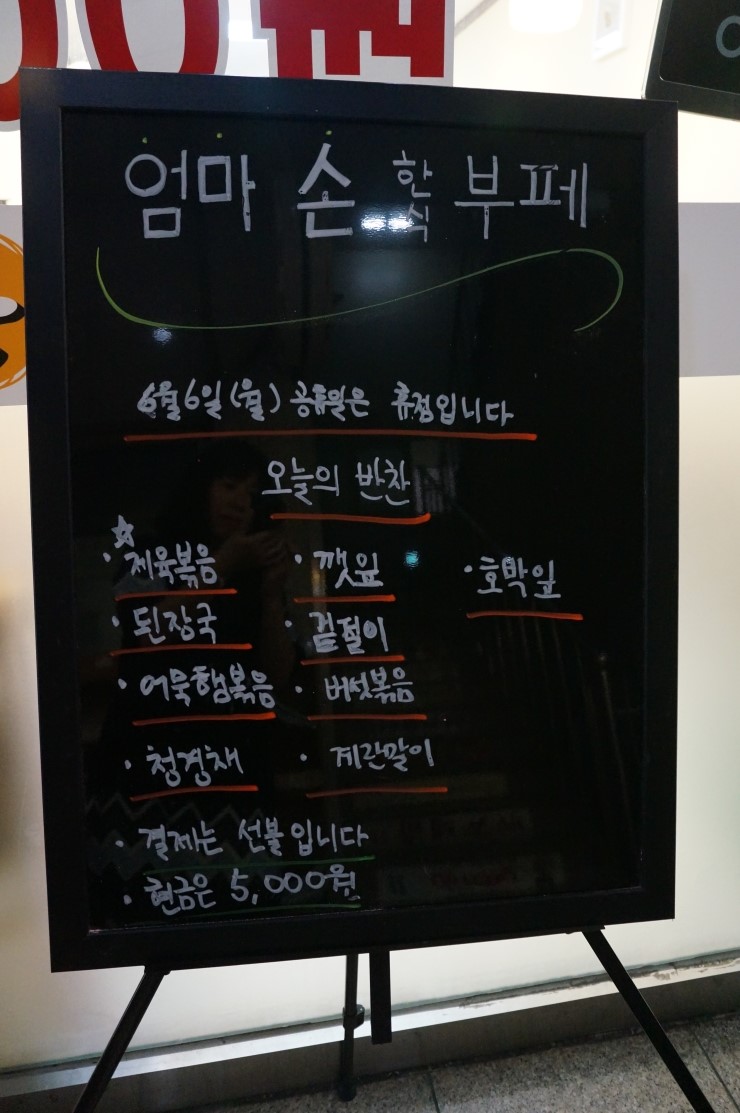 00원
엄마 손 한식 부페
6월6일(월) 공휴일은 휴점입니다
오늘의 반찬
☆
·제육볶음 ·깻잎 ·호박잎
·된장국 ·겉절이
·어묵햄볶음 ·버섯볶음
·청경채 ·계란말이
·결제는 선불입니다
·현금은 5,000원